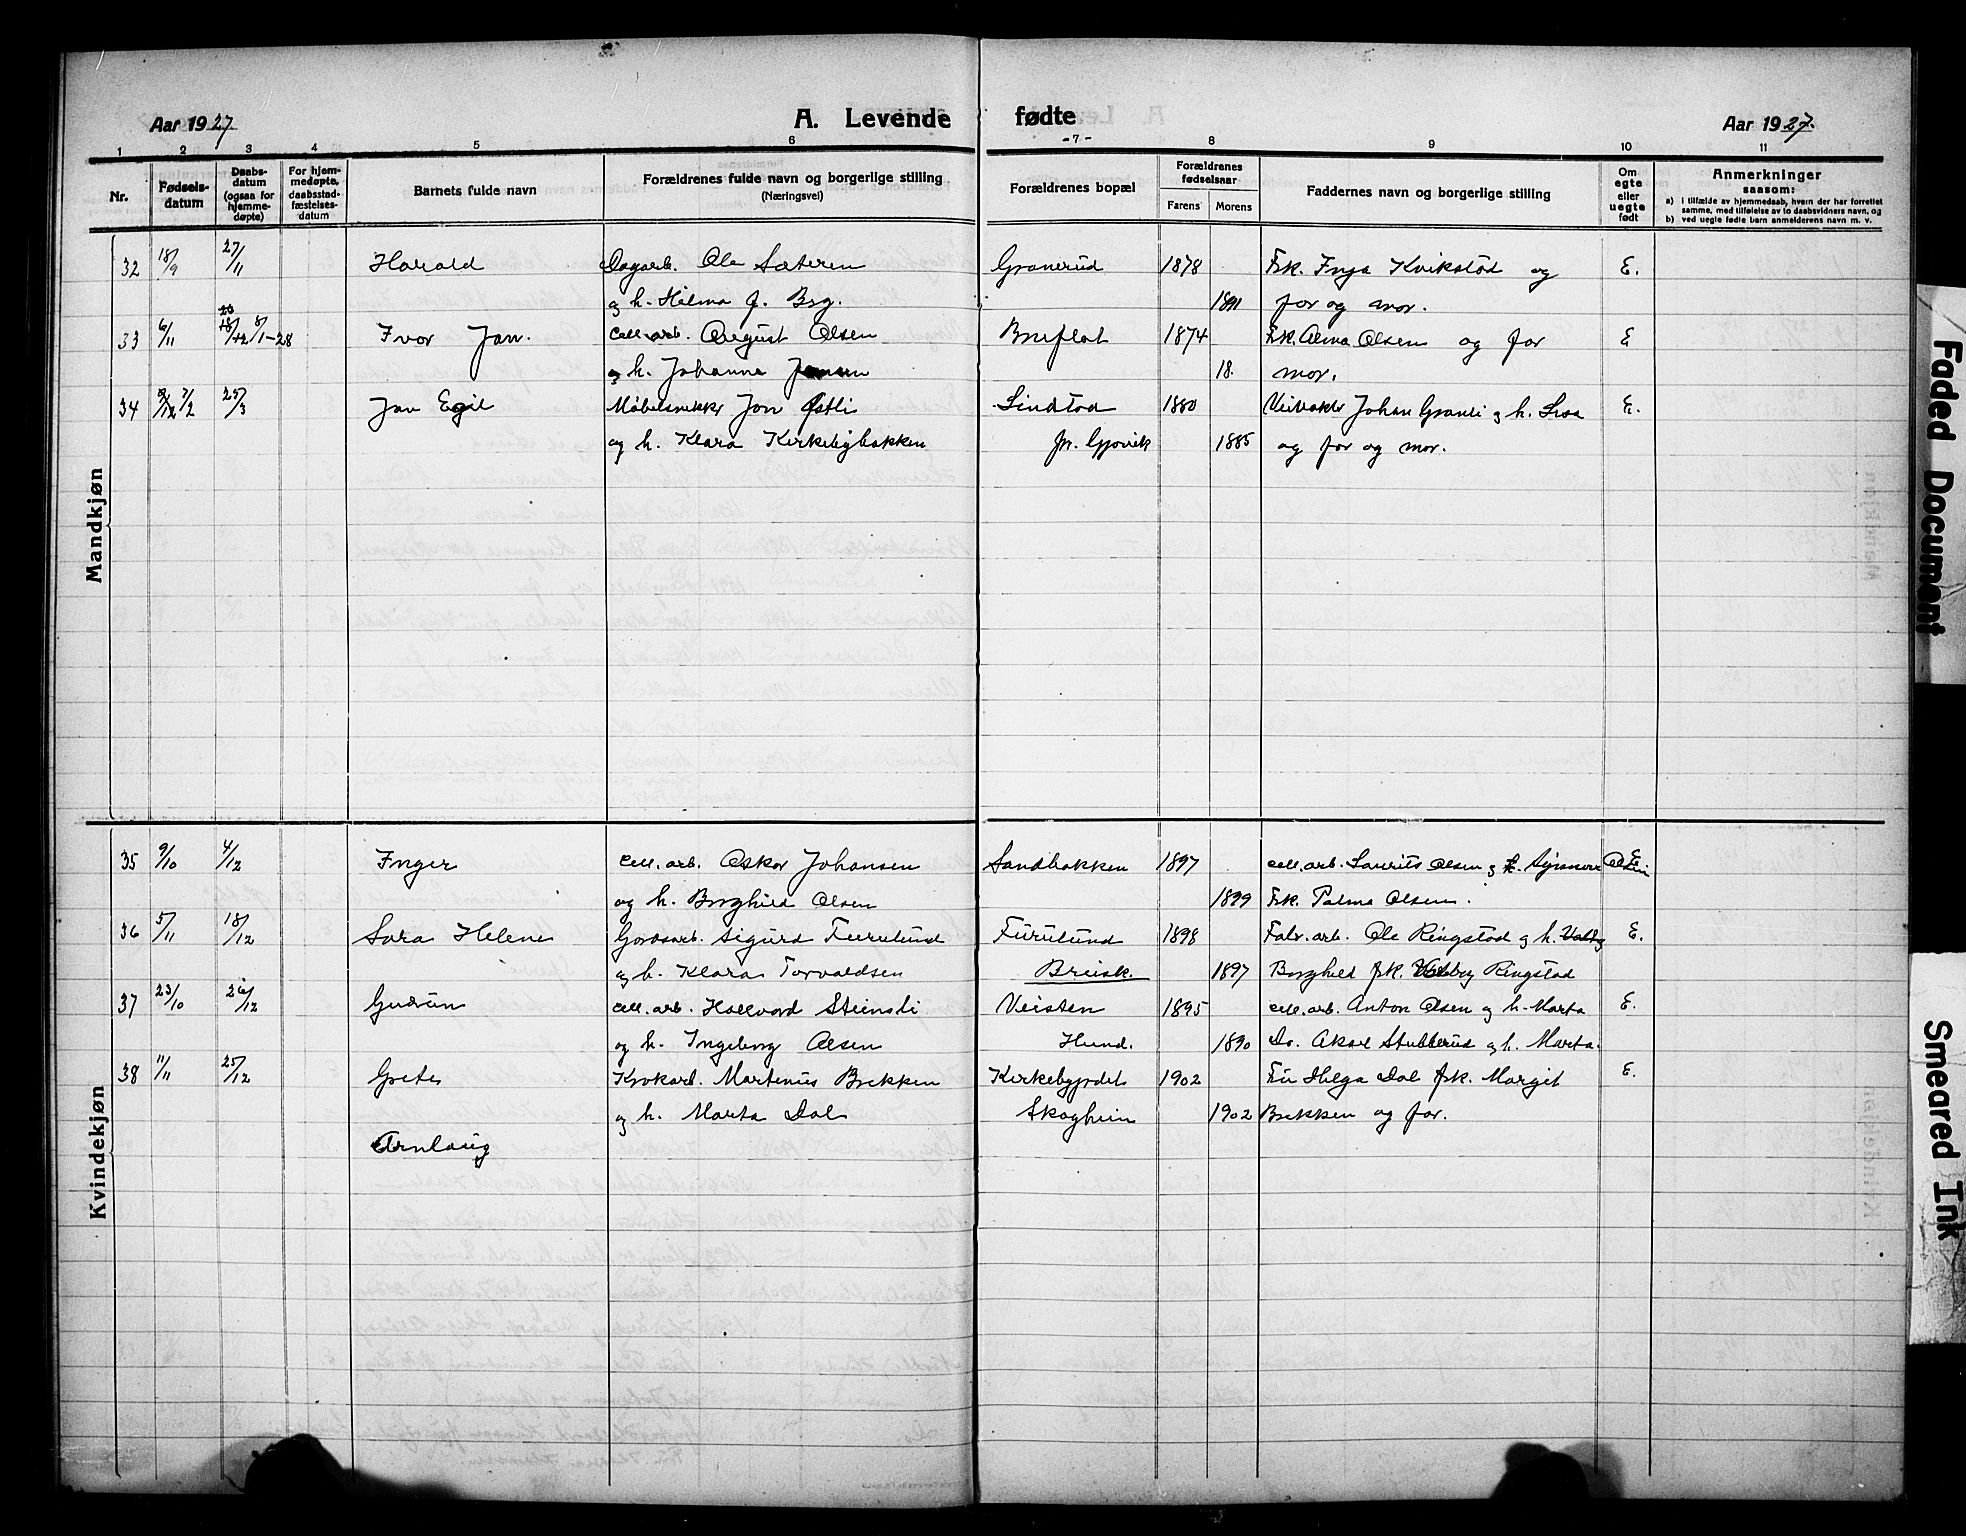 Aar 1927
A. Levende fødte
-7-
Aar 1927.
1 2 3 4 5 6 8 9 10 11
Nr.
Fødsels-
datum
Daabs-
datum
(ogsaa for
hjemme-
døpte)
For hjem-
medøpte,
daabsstad-
fæstelses-
datum
Barnets fulde navn
Forældrenes fulde navn og borgerlige stilling
(Næringsvei)
Forældrenes bopæl
Forældrenes
fødselsaar
Farens Morens
Faddernes navn og borgerlige stilling
Om
egte
eller
uegte
født
Anmerkninger
saasom:
a) i tilfælde av hjemmedaab, hvem der har forrettet
samme, med tilføielse av to daabsvidners navn, og
b) ved uegte fødte barn anmelderens navn m. v.
Mandkjøn
32 18/9 27/11 Harald Dagarb. Ole Sæteren Granerud 1878 Frk. Inga Kvikstad og E.
og h. Hilma f. Berg. 1891 far og mor.
33 6/11 8/1-28 Ivar Jan. cell. arb. August Olsen Breiflat 1874 Frk. Alma Olsen og far E
og h. Johanna 18. mor.
34 25/3 Jan Egil Møbelsnekker Jon Østli Lindstad 1880 Johan Granli og h. Lisa E.
og h. Klara Kirkebybakken pr. Gjøvik 1885 og far og mor.
Kvindekjøn
35 9/10 4/12 Inger cell. arb. Oskar Johansen Sandbakken 1897 cell. arb. Laurits Olsen og Olsen E
og h. Borghild Olsen 1899 Frk. Palma Olsen.
36 5/11 18/12 Sara Helene Gardsarb. Sigurd Furulund Furulund 1898 Fabr. arb. Ole Ringstad og h. E.
og h. Klara Torvaldsen Breisk. 1897 Borghild frk. Valborg Ringstad
37 23/10 26/12 Gudrun cell. arb. Hallvard Steinsli Veisten 1895 cell. arb. Anton Olsen og h. Marta E.
og h. Ingeborg Olsen Hund. 1890 Do. Aksel Stubberud og h. Marta.
38 11/11 25/12 Grete Martenius Brekken Kirkebyjordet 1902 Fru Helga Dal frk. Margit E.
og h. Marta Dal Skogheim 1902 Brekken og far.
Arnlaug
Faded Document
Smeared Ink